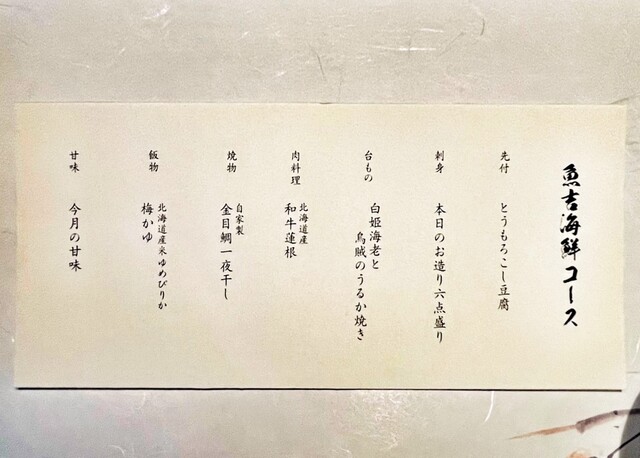 魚吉海鮮コース
先付
とうもろこし豆腐
刺身
本日のお造り六点盛り
台もの
白姫海老と
烏賊のうるか焼き
肉料理
北海道産
和牛蓮根
焼物
自家製
金目鯛一夜干し
飯物
北海道産米ゆめぴりか
梅かゆ
甘味
今月の甘味